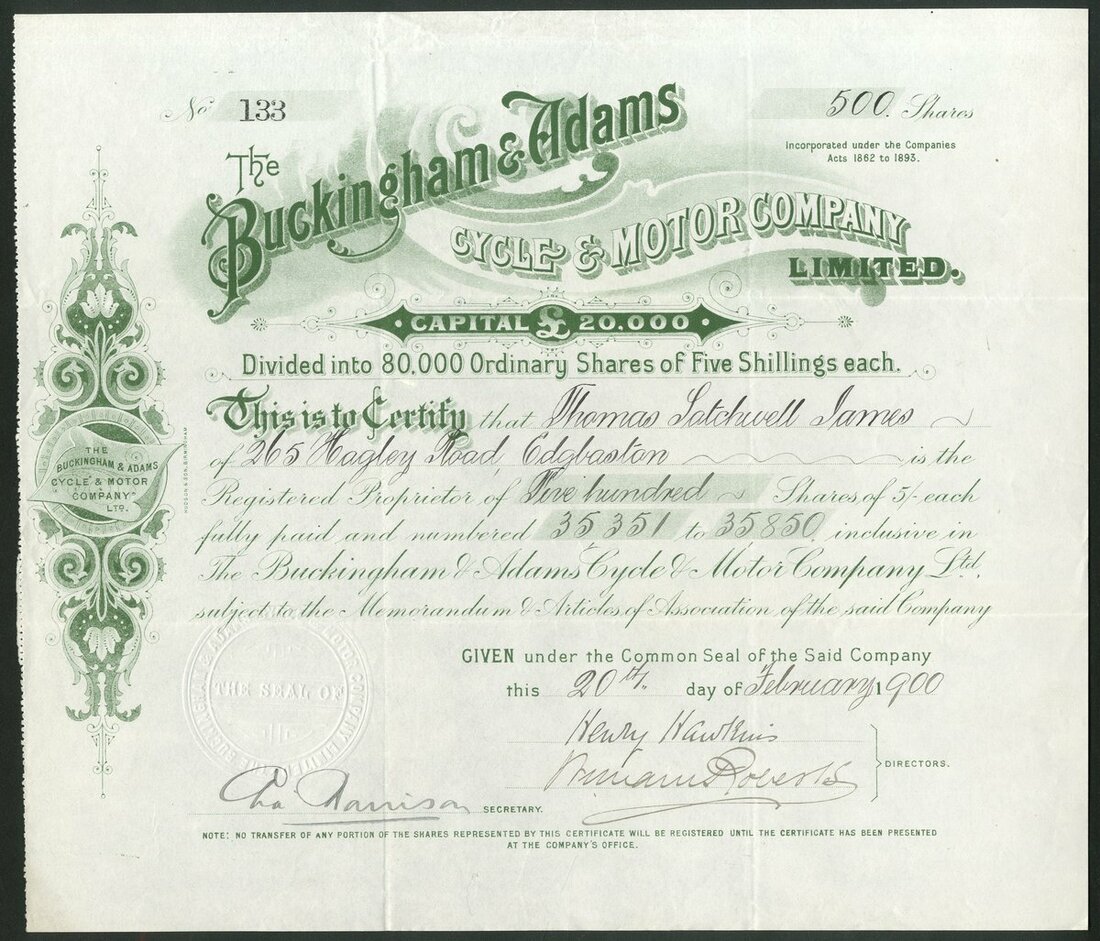 No. 133
500. Shares
Incorporated under the Companies
Acts 1862 to 1893.
The
Buckingham & Adams
CYCLE & MOTOR COMPANY
LIMITED.
CAPITAL £ 20.000
Divided into 80,000 Ordinary Shares of Five Shillings each.
This is to Certify that Thomas Satchwell James
of 265 Hagley Road, Edgbaston is the
Registered Proprietor of Five hundred Shares of 5/- each
fully paid and numbered 35,351 to 35850, inclusive in
The Buckingham & Adams Cycle & Motor Company Ltd.
subject to the Memorandum & Articles of Association of the said Company
THE
BUCKINGHAM & ADAMS
CYCLE & MOTOR
COMPANY
LTD.
THE SEAL OF
GIVEN under the Common Seal of the Said Company
this 20th. day of February 1900
Henry Hawkins
Roberts
DIRECTORS.
Harrison SECRETARY.
NOTE: NO TRANSFER OF ANY PORTION OF THE SHARES REPRESENTED BY THIS CERTIFICATE WILL BE REGISTERED UNTIL THE CERTIFICATE HAS BEEN PRESENTED
AT THE COMPANY'S OFFICE.